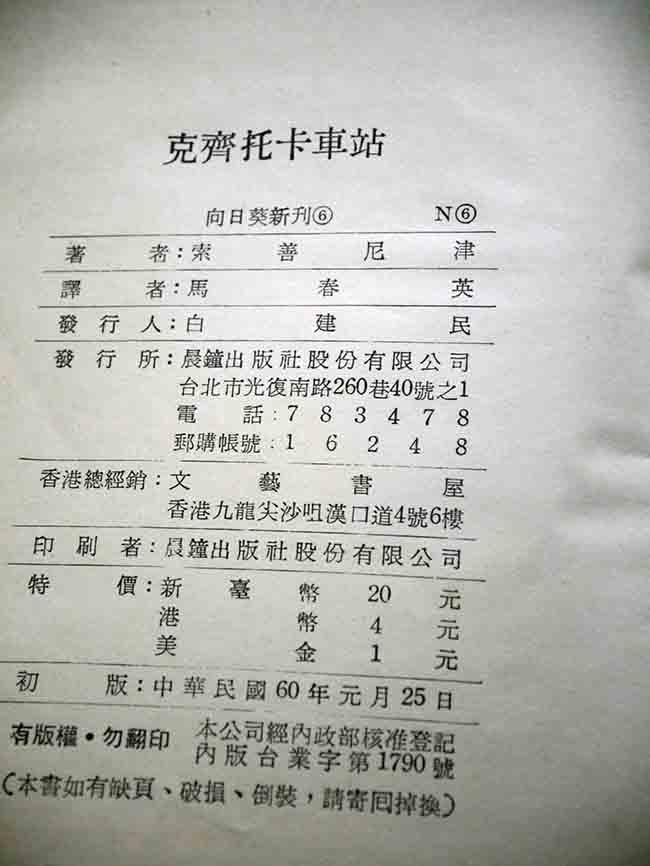 克齊托卡車站
向日葵新刋⑥ N⑥
著者:索善尼津
譯者:馬春英
發行人:白建民
發行所:晨鐘出版社股份有限公司
台北市光復南路260巷40號之1
電話:783478
郵購帳號:16248
香港總經銷:文藝書屋
香港九龍尖沙咀漢口道4號6樓
印刷者:晨鐘出版社股份有限公司
特價:新臺幣20元
港幣4元
美金1元
初版:中華民國60年元月25日
有版權·勿翻印 本公司經內政部核准登記
內版台業字第1790號
(本書如有缺頁、破損、倒裝,請寄囘掉換)